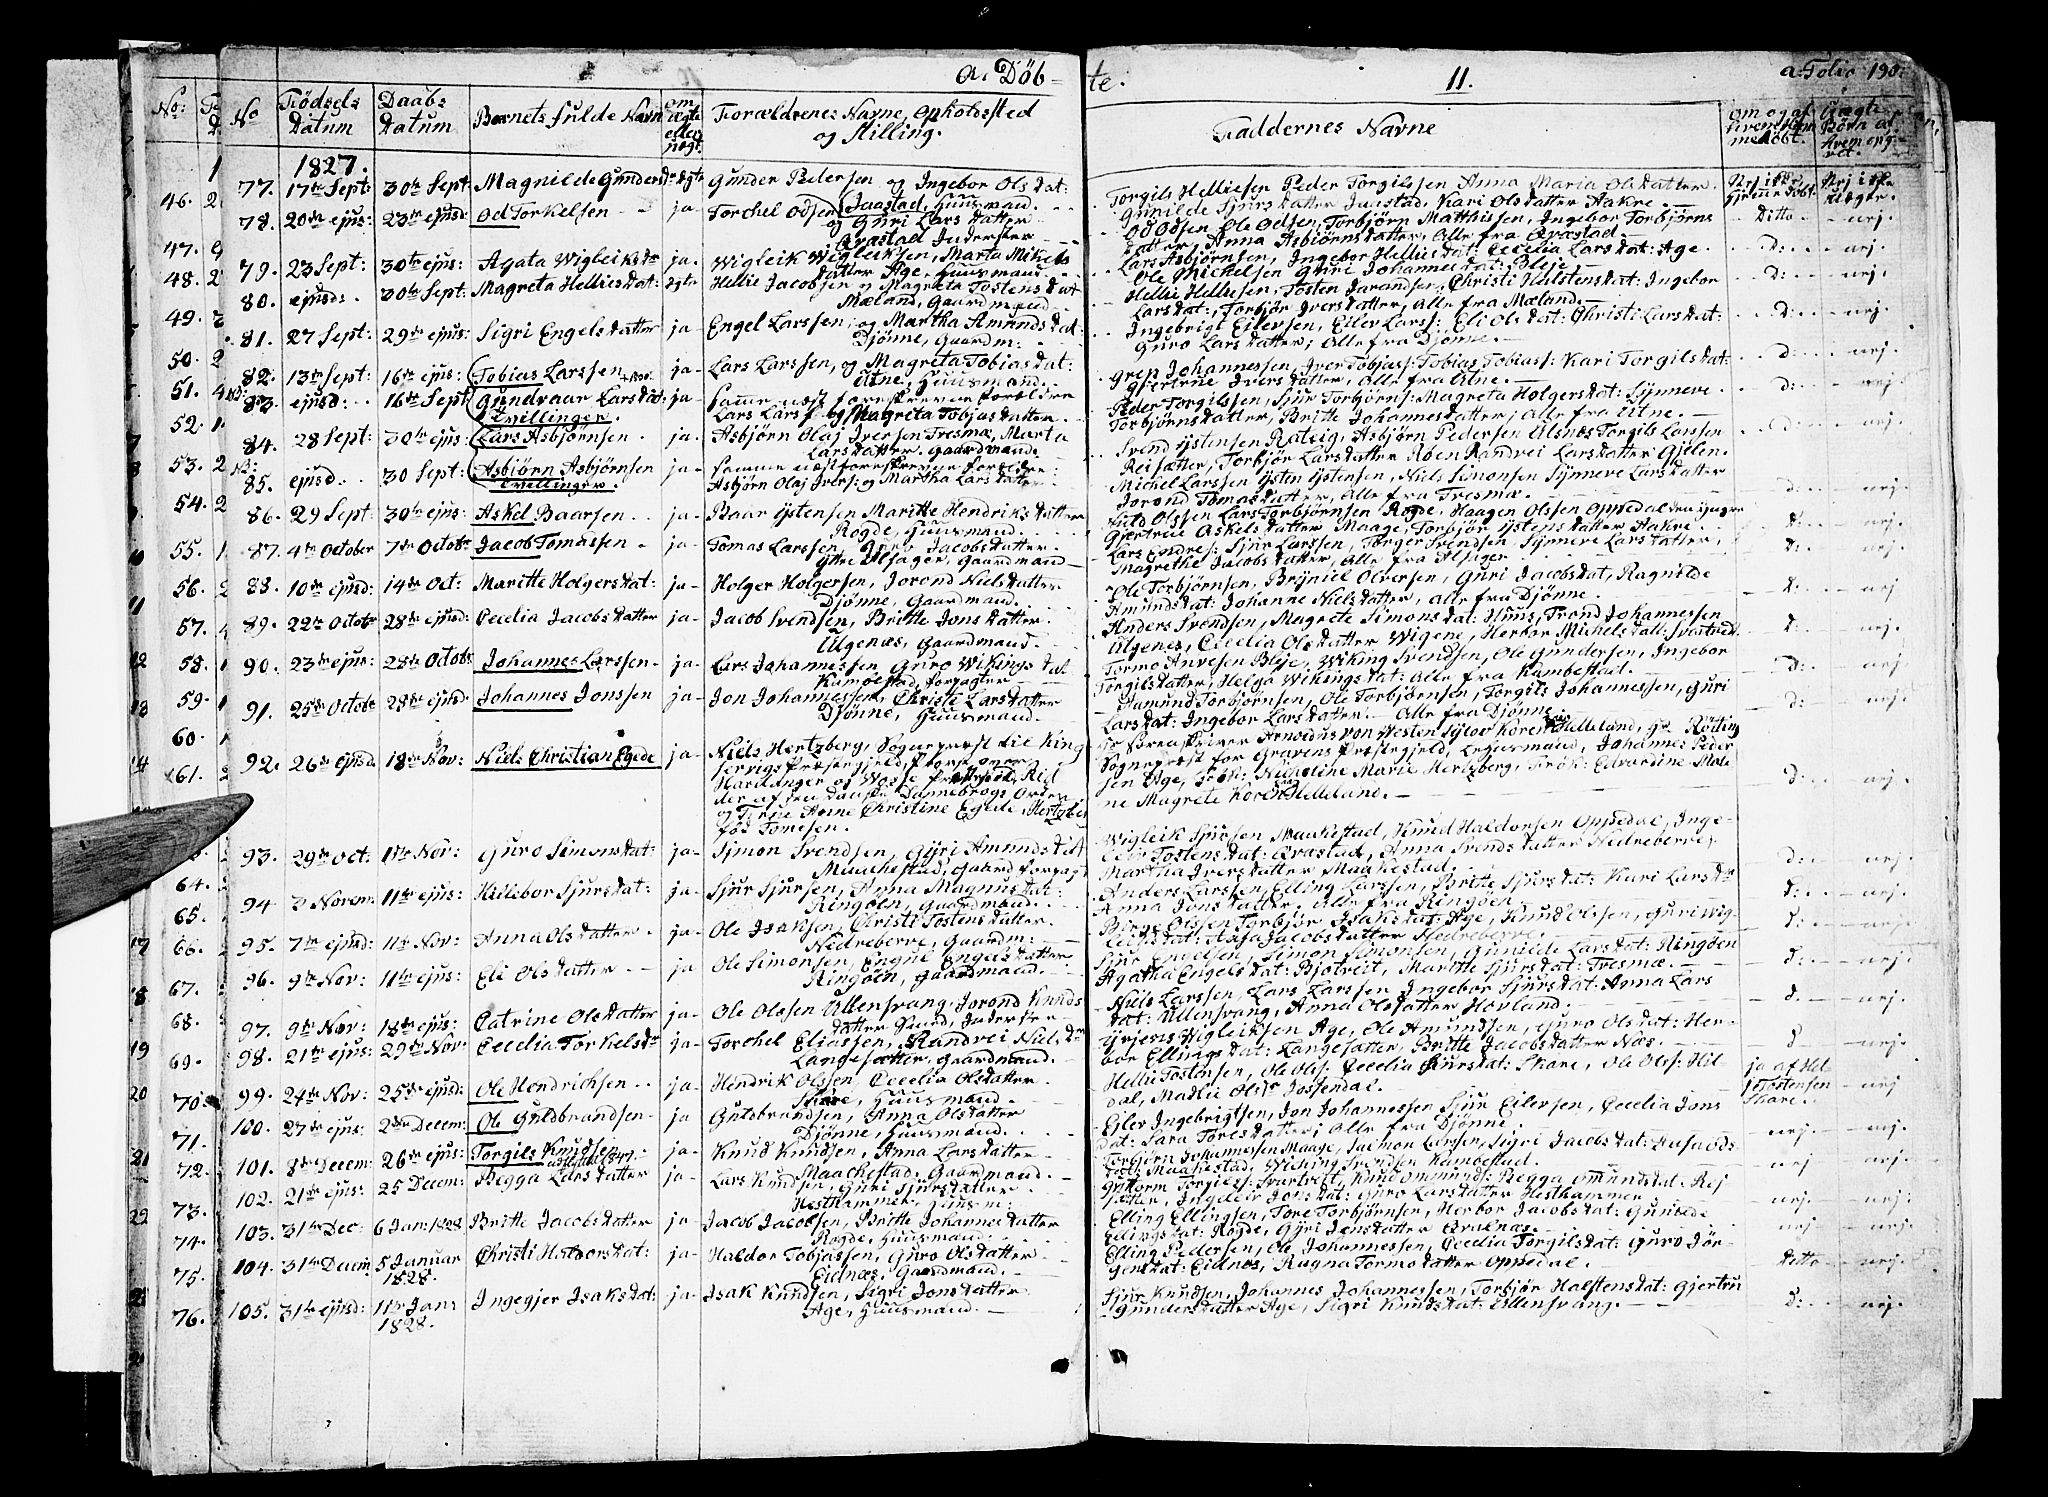 a. Döb-
te.
11.
a. Folio 190.
No
Födsels Datum
Daabs Datum
Barnets fulde Navn
om ægte eller uægt.
Forældrenes Navne, Opholdssted og Stilling.
Faddernes Navne
1827.
77. 17de Sept: 30te Sept: Magnilde Gundersd: ægte Gunder Pedersen og Ingebor Olsdat: Jaastad, Huusmand. Torgils Helliesen Peder Torgilssen Anna Maria Olsdatter
Gunilde Sjursdatter Jaastad, Kari Olsdatter Aakre
78. 20de ejus: 23de ejusd: Od Torkelsen ja Torchel Odsen og Guri Larsdatter Qvæstad Inderster Od Odsen, Ole Odsen, Torbjörn Matthissen, Ingebor Torbjörns
datter, Anna Asbiörnsdatter, Alle fra Qvæstad. Ditto nej.
79. 23 Sept: 30te ejus: Agata Wigleiksdr ja Wigleik Wigleiksen, Marta Mikelsdatter Age, Huusmand Lars Asbjörnsen, Ingebor Helliesdat: Cecelia Larsdat: Age
Ole Michelsen Guri Johannesdat: Bleje d: nej.
80. ejusd: 30te Sept: Magreta Helliesdat: ægte Hellie Jacobsen og Magreta Tostensdat Mæland, Gaardmand Hellie Helliesen, Tosten Jarandsen, Christi Halstensdat: Ingebor
Larsdat:, Torbjör Iversdatter, Alle fra Mæland. d: nej.
81. 27 Sept: 29de ejus: Sigri Engelsdatter ja Engel Larssen, og Martha Amundsdat: Djönne, Gaardm: Ingebrigt Eilersen, Eiler Larss: Eli Olsdat: Christi Larsdat:
Guro Larsdatter, Alle fra Djönne. d: nej.
82. 13de Sept: 16te ejus: Tobias Larssen ja Lars Larssen, og Magreta Tobiasdat: Utne, Huusmand. Grep Johannessen, Iver Tobjass: Tobias Tobiass: Kari Torgilsdat:
Gjertrue Iversdatter, Alle fra Utne. d: nej.
83. ejusd: 16te Sept Gundvaar Larsdat: Tvillinger. ja Samme næstforeskrevne Forældre Lars Larss: og Magreta Tobjasdatter Peder Torgilsen, Sjur Torbjörns: Magreta Holgersdat: Synneve
Torbjörnsdatter, Britte Johannesdatter, Alle fra Utne. d: nej.
84. 28 Sept: 30te ejus: Lars Asbjörnsen ja Asbjörn Olaj Iversen Tresmæ, Marta Larsdatter. Gaardmand Svend Ystensen Ratvig, Asbjörn Pedersen Alsnæs Torgils Larssen
Reisætter, Torbjör Larsdatter Aben Randvei Larsdatter Gjelen. d: nej.
85. ejusd. 30 Sept: Asbiörn Asbjörnsen Tvillinger. ja Samme næstforeskrevne Forældre: Asbjörn Olaj Ivers: og Martha Larsdatter Michel Larssen Ysten Ystensen, Niels Simonsen Synneve Larsdatter
Jorond Tomasdatter, Alle fra Tresmæ. d: nej.
86. 29 Sept: 30te ejus: Askel Baarsen ja Baar Ystensen Maritte Hendriksdatter Rogde, Huusmand Lars Torbjörnsen Rogde, Haagen Olsen Oppedal den yngre
Gjertrue Askelsdatter Maage, Torbjör Ystensdatter Aakre d: nej.
87. 4de October 7de Octobr Jacob Tomassen ja Tomas Larssen, Guro Jacobsdatter Ytre Alsager, Gaardmand Lars Endres: Sjur Larssen, Torger Svendsen Synneve Larsdatter,
Magrethe Jacobsdatter, Alle fra Alsager. d: nej.
88. 10de ejusd: 14de Oct: Maritte Holgersdat: ja Holger Holgersen, Jorond Nielsdatter Djönne, Gaardmand. Ole Torbjörnsen, Brynild Olversen, Guri Jacobsdat, Ragnilde
Amundsdat: Johanne Nielsdatter, Alle fra Djönne. d: nej
89. 22de Octobr 28de ejusd: Cecelia Jacobsdatter ja Jacob Svendsen, Britte Jonsdatter Algenæs, Gaardmand. Anders Svendsen, Magrete Simonsdat: Huus, Trond Johannessen
Algenes, Cecelia Olsdatter Wigene, Herbor Michelsdatt: Svartved. d: nej.
90. 23de ejus: 28de Octobr Johannes Larssen ja Lars Johannessen, Guro Wikingsdat Kambestad, Forpagter Tormo Anvesen Bleje, Wiking Svendsen, Ole Gundersen, Ingebor
Torgilsdatter, Helga Wikingsdat: Alle fra Kambestad. d: nej.
91. 25de Octobr 28de ejusd Johannes Jonssen ja Jon Johannessen, Christi Larsdatter Djönne, Huusmand. Aamund Torbjörnsen, Ole Torbjörnsen, Torgils Johannessen, Guri
Larsdat: Ingebor Larsdatter. Alle fra Djönne d: nej.
92. 26de ejusd 18de Nov: Niels Christian Egede ja Niels Hertzberg, Sogneprest til Kingservigs Præstegjeld, Provst over Hardanger og Wosse Provstie, Ridder af den danske Dannebrogs Orden og Firne Anne Christine Egede Hertzberg föd Tomesen. Hr Sorenskriver Arnoldus von Westen Sylow Koren Helleland, Hr Röting
Sognepræst for Gravens Præstegjeld, Lensmand, Johannes Peder
sen Age, Frök: Nicholine Marie Hertzberg, Frök: Edvardine Male
ne Magrete Koren Helleland. d: nej.
93. 29de Oct: 11te Nov: Guro Simonsdat: ja Simon Svendsen, Gyri Amundsdat Maakestad, Gaard forpagt Wigleik Sjursen Maakestad, Knud Haldorsen Oppedal, Inge-
leiv Tostensdat: Qvæstad, Anna Svendsdatter Nedreberre,
Martha Iversdatter Maakestad. d: nej.
94 3 Novem: 11te ejus: Hillebor Sjursdat: ja Sjur Sjursen, Anna Magnusdat: Ringöen, Gaardmand. Anders Larssen, Elling Larssen, Britte Sjursdat: Kari Larsdr
Anna Jonsdatter, Alle fra Ringöen d: nej.
95. 7de ejusd: 11te Nov: Anna Olsdatter ja Ole Isaksen, Christi Tostensdatter Nedreberre, Gaardm: Börge Olssen Torbjör Isaksdat: Age, Knud Olssen, Guri Wig-
leiksdat: Anna Jacobsdatter Nedreberre. d: nej.
96. 9de Nov: 11te ejus: Eli Olsdatter ja Ole Simonsen, Engne Engelsdatter Ringöen, Gaardmand. Sjur Engelsen, Simon Simonsen, Gunilde Larsdat: Ringöen
Agatha Engelsdat: Bjotveit, Maritte Sjursdat: Tresmæ. d: nej.
97. 9de Nov: 18de ejus: Catrine Olsdatter ja Ole Olssen Ullensvang, Jorond Knudsdatter Sund, Inderster Niels Larssen, Lars Larssen Ingebor Sjursdat: Anna Lars
dat: Ullensvang, Anna Olsdatter Hovland. d. nej.
98. 21de ejus: 29de Nov: Cecelia Torkelsdr ja Torchel Eliassen, Randvei Nielsdr Langesætter, Gaardmand. Wigleiksen Age, Ole Amundsen, Guro Olsdat: Her-
bor Ellingsdat: Langesætter, Britte Jacobsdatter Næs. d nej.
99. 24de Nov: 25de ejusd: Ole Hendrichsen ja Hendrik Olssen, Cecelia Olsdatter Skare, Huusmand. Hellie Tostensen, Ole Ols: Cecelia Sjursdat: Skare, Ole Ols: Hil-
dal, Madlie Olsdr Jossendal. ja af Hel Tostensen Skare. nej.
100. 27de ejus: 2den Decem: Ole Guldbrandsen ja Gulbrandsen, Anna Olsdatter Djönne, Huusmand. Eiler Ingebrigtsen, Jon Johannessen Sjur Eilersen, Cecelia Jons
dat: Sara Toresdatter, Alle fra Djönne. nej. nej.
101. 8de Decem: 26de ejus: Torgils Knuds: ja Knud Knudsen, Anna Larsdatter Maachestad, Gaardmand. Torbjörn Johannessen Maage, Salmon Larssen, Sigri Jacobsdat:
Maakestad, Wiking Svendsen Kambestad. nej nej.
102. 21de ejus: 25 Decem: Begga Larsdatter ja Lars Knudsen, Guri Sjursdatter Hesthammer, Huusm: Guttorm Torgiess: Svartveit, Knud Omunds: Begga Omundsdat: Rej
sætter, Ingeleiv Jonsdat: Guro Larsdatter Hesthammer nej. nej.
103. 31te Dec: 6 Jan: 1828 Britte Jacobsdatter ja Jacob Jacobsen, Britte Johannesdatter Rogde, Huusmand Elling Ellingsen, Tore Torbjörnsen, Herbor Jacobsdat: Gunilde
Eilingsdat: Rogde, Gyri Jensdatter Qvalnæs. nej nej.
104. 31te Decem: 5 Januar 1828. Christi Haldorsdat: ja Haldor Tobjassen, Guro Olsdatter Eidnæs, Gaardmand. Elling Pedersen, Ole Johannessen, Cecelia Torgilsdat: Guro Jör-
gensdat: Eidnæs, Ragna Tormodatter Oppedal. ditto nej.
105. 31te ejusd: 11te Jan: 1828. Ingegjer Isaksdat: ja Isak Knudsen, Sigri Jonsdatter Age, Huusmand. Sjur Knudsen, Johannes Johannessen, Torbjör Halstensdat: Gjertru
Gundersdatter Age, Sigri Knudsdat: Ullensvang. d: nej.
No:
46.
47.
48.
49.
50.
51.
52.
53.
54.
55.
56.
57.
58.
59.
60.
61.
64.
65.
66.
67.
68.
69.
70.
71.
72.
73.
74.
75.
76.